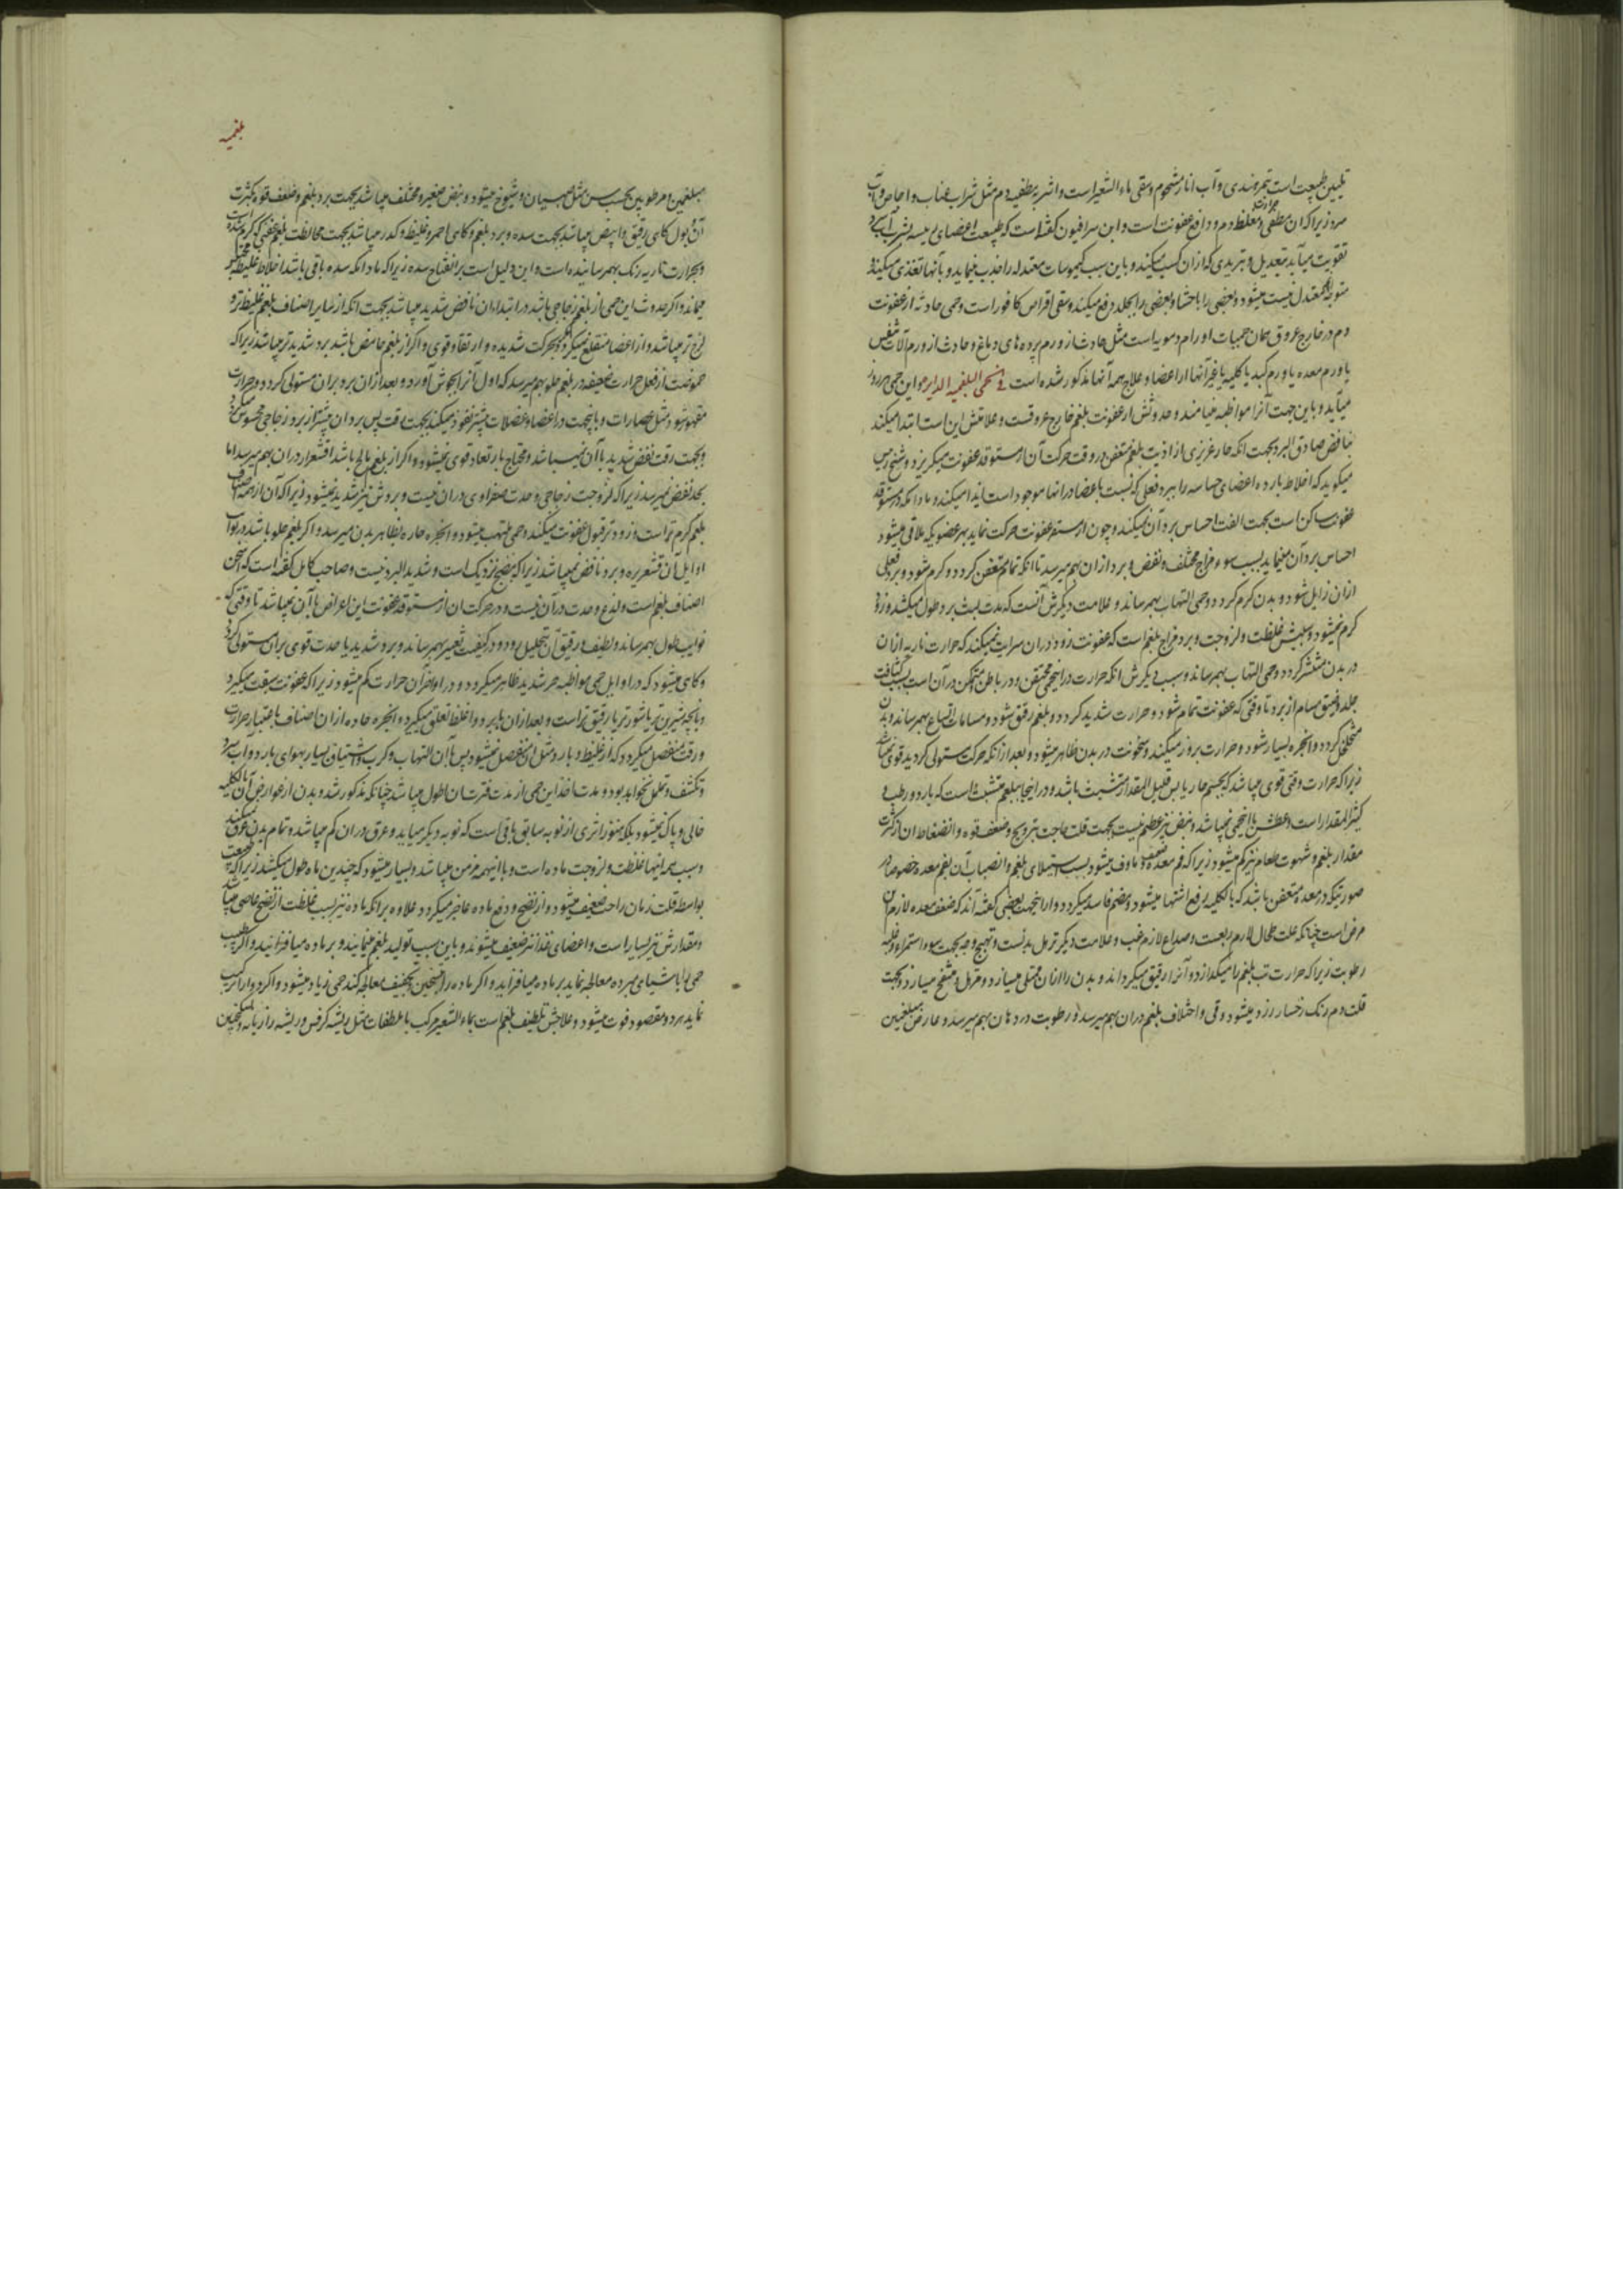 تلیین طبیعت است بتمر هندی و آب انار مشحوم و سقی ماء الشعیر است و اشربه مطفیه دم مثل شراب عناب و اجاص و آب
سرد زیرا که آن مطفی حرارت و مغلظ دم و دافع عفونت است و ابن سرافیون گفته است که طبیعت اعضای رییسه بشرب آب سرد
تقویت میابد بتعدیل و تبریدی که از ان کسب میکنند و باین سبب کیموسات معتدله را جذب مینماید و بآنها تغذی میکند و
معتدل نیست میشود و بعضی را باحشا و بعضی را بجلد دفع میکند و سقی اقراص کافور است و حمی حادثه از عفونت
دم در خارج عروق همان حمیات اورام دمویه است مثل حادث از ورم پرده های دماغ و حادث از ورم آلات تنفس
یا ورم معده یا ورم کبد یا کلیه یا غیر آنها از اعضا و علاج همه آنها مذکور شده است فی الحمی البلغمیه الدایره و این حمی هر روز
میآید و باین جهت آنرا مواظبه مینامند و حدوثش از عفونت بلغم خارج عروقست و علامتش این است ابتدا میکند
بنافض صادق البرد بجهت انکه حار غریزی از اذیت بلغم متعفن در وقت حرکت آن از مستوقد عفونت میگریزد و شیخ رییس
میگوید که اخلاط بارده اعضای حساسه را ببرد فعلی که نسبت باعضا در انها موجود است ایذا میکند و مادامکه در مستوقد
عفونت ساکن است بجهت الفت احساس برد آن نمیکند و چون از مستقر عفونت حرکت نماید بهر عضویکه ملاقی میشود
احساس برد آن مینماید بسبب سوء مزاج مختلف و نفض و برد از ان بهم میرسد تا انکه تمام متعفن گردد و گرم شود و برد فعلی
ازان زایل شود و بدن گرم گردد و حمی التهاب بهمرساند و علامت دیگرش آنست که مدت لبث برد طول میکشد و زود
گرم نمیشود و سببش غلظت و لزوجت و برد مزاج بلغم است که عفونت زود در ان سرایت نمیکند که حرارت ناریه ازان
در بدن منتشر گردد و حمی التهاب بهمرساند و سبب دیگرش انکه حرارت در اینحمی محتقن و در باطن متمکن در آن است بسبب کثافت
جلد و ضیق مسام از برد تا وقتی که عفونت تمام شود و حرارت شدید گردد و بلغم رقیق شود و مسامات اتساع بهمرساند و بدن
متخلخل گردد و ابخره بسیار شود و حرارت بروز میکند و سخونت در بدن ظاهر میشود و بعد از انکه حرکت مستولی گردید قوی نمیباشد
زیرا که حرارت وقتی قوی میباشد که بجسم حار یابس قلیل المقدار متشبث باشد و در اینجا ببلغم متشبث است که بارد و رطب و
کثیر المقدار است و عطش با اینحمی نمیباشد و نبض نیز عظیم نیست بجهت قلت حاجت بترویح و ضعف قوه و انضغاط آن از کثرت
مقدار بلغم و شهوت طعام نیز کم میشود زیرا که فم معده ضعیف و ماوف میشود بسبب استیلای بلغم و انصباب آن بفم معده خصوصا در
صورتیکه در معده متعفن باشد که بالکلیه رفع اشتها میشود و هضم فاسد میگردد و ازاینجهت بعضی گفته اند که ضعف معده لازم این
مرض است چنانکه علت طحال لازم ربعست و صداع لازم غب و علامت دیگر ترهل بدنست و تهبج وجه بجهت سوء استمراء و غلبه
رطوبت زیرا که حرارت تب بلغم را میگدازد و آنرا رقیق میگرداند و بدن را از ان ممتلی میسازد و مترهل و منتفخ میسازد و بجهت
قلت دم رنگ رخسار زرد میشود و قی و اختلاف بلغم در ان بهم میرسد و رطوبت در دهان بهم میرسد و عارض مبلغمین
بلغمیه
مبلغمین و مرطوبین بحسب سن مثل صبیان و شیوخ میشود و نبض صغیر و مختلف میباشد بجهت برد بلغم و ضعف قوه و کثرت
آن و بول گاهی رقیق و ابیض میباشد بجهت سده و برد بلغم و گاهی احمر و غلیظ و کدر میباشد بجهت مخالطت بلغم عفنی که گرم شده
و بحرارت ناریه رنگ بهمرسانیده است و این دلیل است بر انفتاح سده زیرا که مادامکه سده باقی باشد اخلاط غلیظه محتبس
میماند و اگر حدوث این حمی از بلغم زجاجی باشد در ابتداء ان نافض شدید میباشد بجهت انکه از سایر اصناف بلغم غلیظ تر و
لزج تر میباشد و از اعضا منقلع نمیگردد مگر بحرکت شدیده و ارتقاء قوی و اگر از بلغم حامض باشد برد شدید تر میباشد زیرا که
حموضت از فعل حرارت ضعیفه در بلغم حلو بهم میرسد که اول آنرا بجوش آورد و بعد از ان برد بر ان مستولی گردد و حرارت
مقهور شود مثل عصارات و باینجهت در اعضا و عضلات بیشتر نفوذ میکند بجهت رقت پس برد ان بیشتر از برد زجاجی محسوس میگردد
و بجهت رقت نفض شدید با آن نمیباشد و محتاج بارتعاد قوی نمیشود و اگر از بلغم مالح باشد اقشعرار در ان بهم میرسد اما
بحد نفض نمیرسد زیرا که لزوجت زجاجی و حدت صفراوی در ان نیست و بردش نیز شدید نمیشود زیرا که آن از همه اصناف
بلغم گرم تر است و زودتر قبول عفونت میکند و حمی ملتهب میشود و ابخره حاره بظاهر بدن میرسد و اگر بلغم حلو باشد در نوایب
اوایل آن قشعریره و برد و نافض نمیباشد زیرا که بنضج نزدیک است و شدید البرد نیست و صاحب کامل گفته است که اسخن
اصناف بلغم است و لذع و حدت در آن نیست و در حرکت ان از مستوقد عفونت این اعراض با آن نمیباشد تا وقتی که
نوایب طول بهمرساند و لطیف و رقیق آن بتحلیل رود و در کیفیت تغییر بهمرساند و برد شدید یا حدت قوی بر ان مستولی گردد
و گاهی میشود که در اوایل حمی مواظبه حر شدید ظاهر میگردد و در اواخر آن حرارت کم میشود زیرا که عفونت سبقت میگیرد
و بانچه شیرین تر یا شورتر یا رقیق تر است و بعد از ان بابرد و اغلظ تعلق میگیرد و ابخره حاده از ان اصناف باعتبار حرارت
و رقت منفصل میگردد که از غلیظ و بارد مثل ان منفصل نمیشود پس با آن التهاب و کرب و اشتیاق بسیار بهوای بارد و آب سرد
و تکشف و تململ نخواهد بود و مدت اخذ این حمی از مدت فترت ان اطول میباشد چنانکه مذکور شد و بدن از عوارض آن بالکلیه
خالی و پاک نمیشود بلکه هنوز اثری از نوبه سابق باقی است که نوبه دیگر میاید و عرق در ان کم میباشد و تمام بدن عرق نمیکند
و سبب همه اینها غلظت و لزوجت ماده است و با اینهمه مزمن میباشد و بسیار میشود که چندین ماه طول میکشد زیرا که طبیعت
بواسطه قلت زمان راحت ضعیف میشود و از نضج و دفع ماده عاجز میگردد علاوه بر انکه ماده نیز بسبب غلظت از نضج عاصی میباشد
و مقدارش نیز بسیار است و اعضای غذا نیز ضعیف میشوند و باین سبب تولید بلغم مینمایند و بر ماده میافزایند و اگر طبیب
حمی را باشیای مبرده معالجه نماید بر ماده میافزاید و اگر ماده را بتسخین و تجفیف معالجه کند حمی زیاد میشود و اگر دوا را ترکیب
نماید هر دو مقصود فوت میشود و علاجش تلطیف بلغم است بماء الشعیر مرکب با ملطفات مثل ریشه کرفس و ریشه رازیانه و سکنجبین